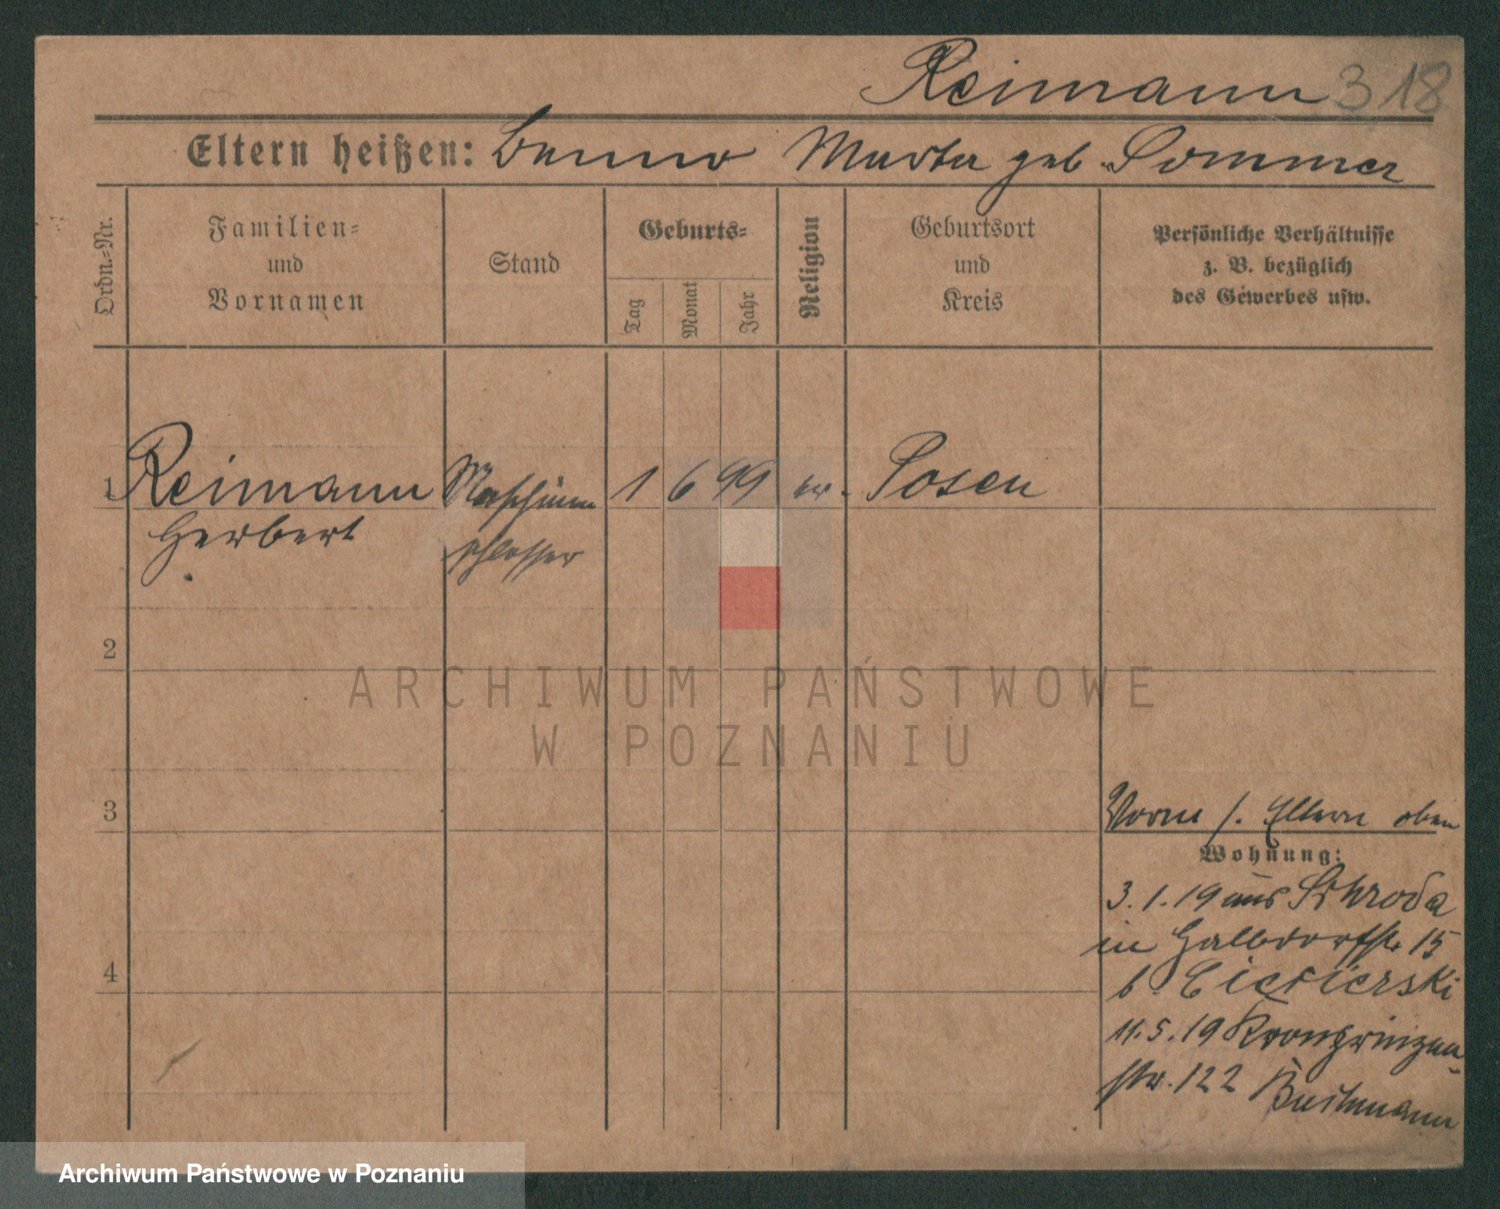 Reimann 318
Eltern heißen: Benno Marta geb Sommer
Ordn.-Nr.
Familien-
und
Vornamen
Stand
Geburts-
Tag
Monat
Jahr
Religion
Geburtsort
und
Kreis
Persönliche Verhältnisse
z. B. bezüglich
des Gewerbes usw.
1 Reimann Maschinen 1 6 99 ev. Posen
Herbert schlosser
2
ARCHIWUM PAŃSTWOWE
W POZNANIU
3
Vorm s. Eltern oben
Wohnung:
3.1.19 aus Schroda
in Halbdorfstr 15
4
b.
11.5.19 Kronprinzen-
str. 122
Archiwum Państwowe w Poznaniu